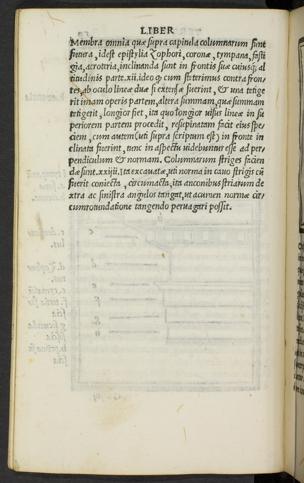 LIBER
Membra omnia quæ supra capitula columnarum sunt
futura, idest epistylia Zophori, coronæ, tympana, fasti
gia, acroteria, inclinanda sunt in frontis suæ cuiusq; al
titudinis parte.xii.ideo q; cum steterimus contra fron,
tes, ab oculo lineæ duæ si extensæ fuerint, & una tetige
rit imam operis partem, altera summam, quæ summam
tetigerit, longior fiet, ita quo longior uisus lineæ in su
periorem partem procedit, resupinatam facit eius spe
ciem, cum autem (uti supra scriptum est) in fronte in
clinata fuerint, tunc in aspectu uidebuntur esse ad per
pendiculum & normam. Columnarum striges facien
dæ sunt.xxiiii. Ita excauatæ, uti norma in cauo strigis cū
fuerit coniecta, circumacta, ita anconibus striarum de
xtra ac sinistra angulos tangat, ut acumen normæ cir
cumrotundatione tangendo peruagari possit.